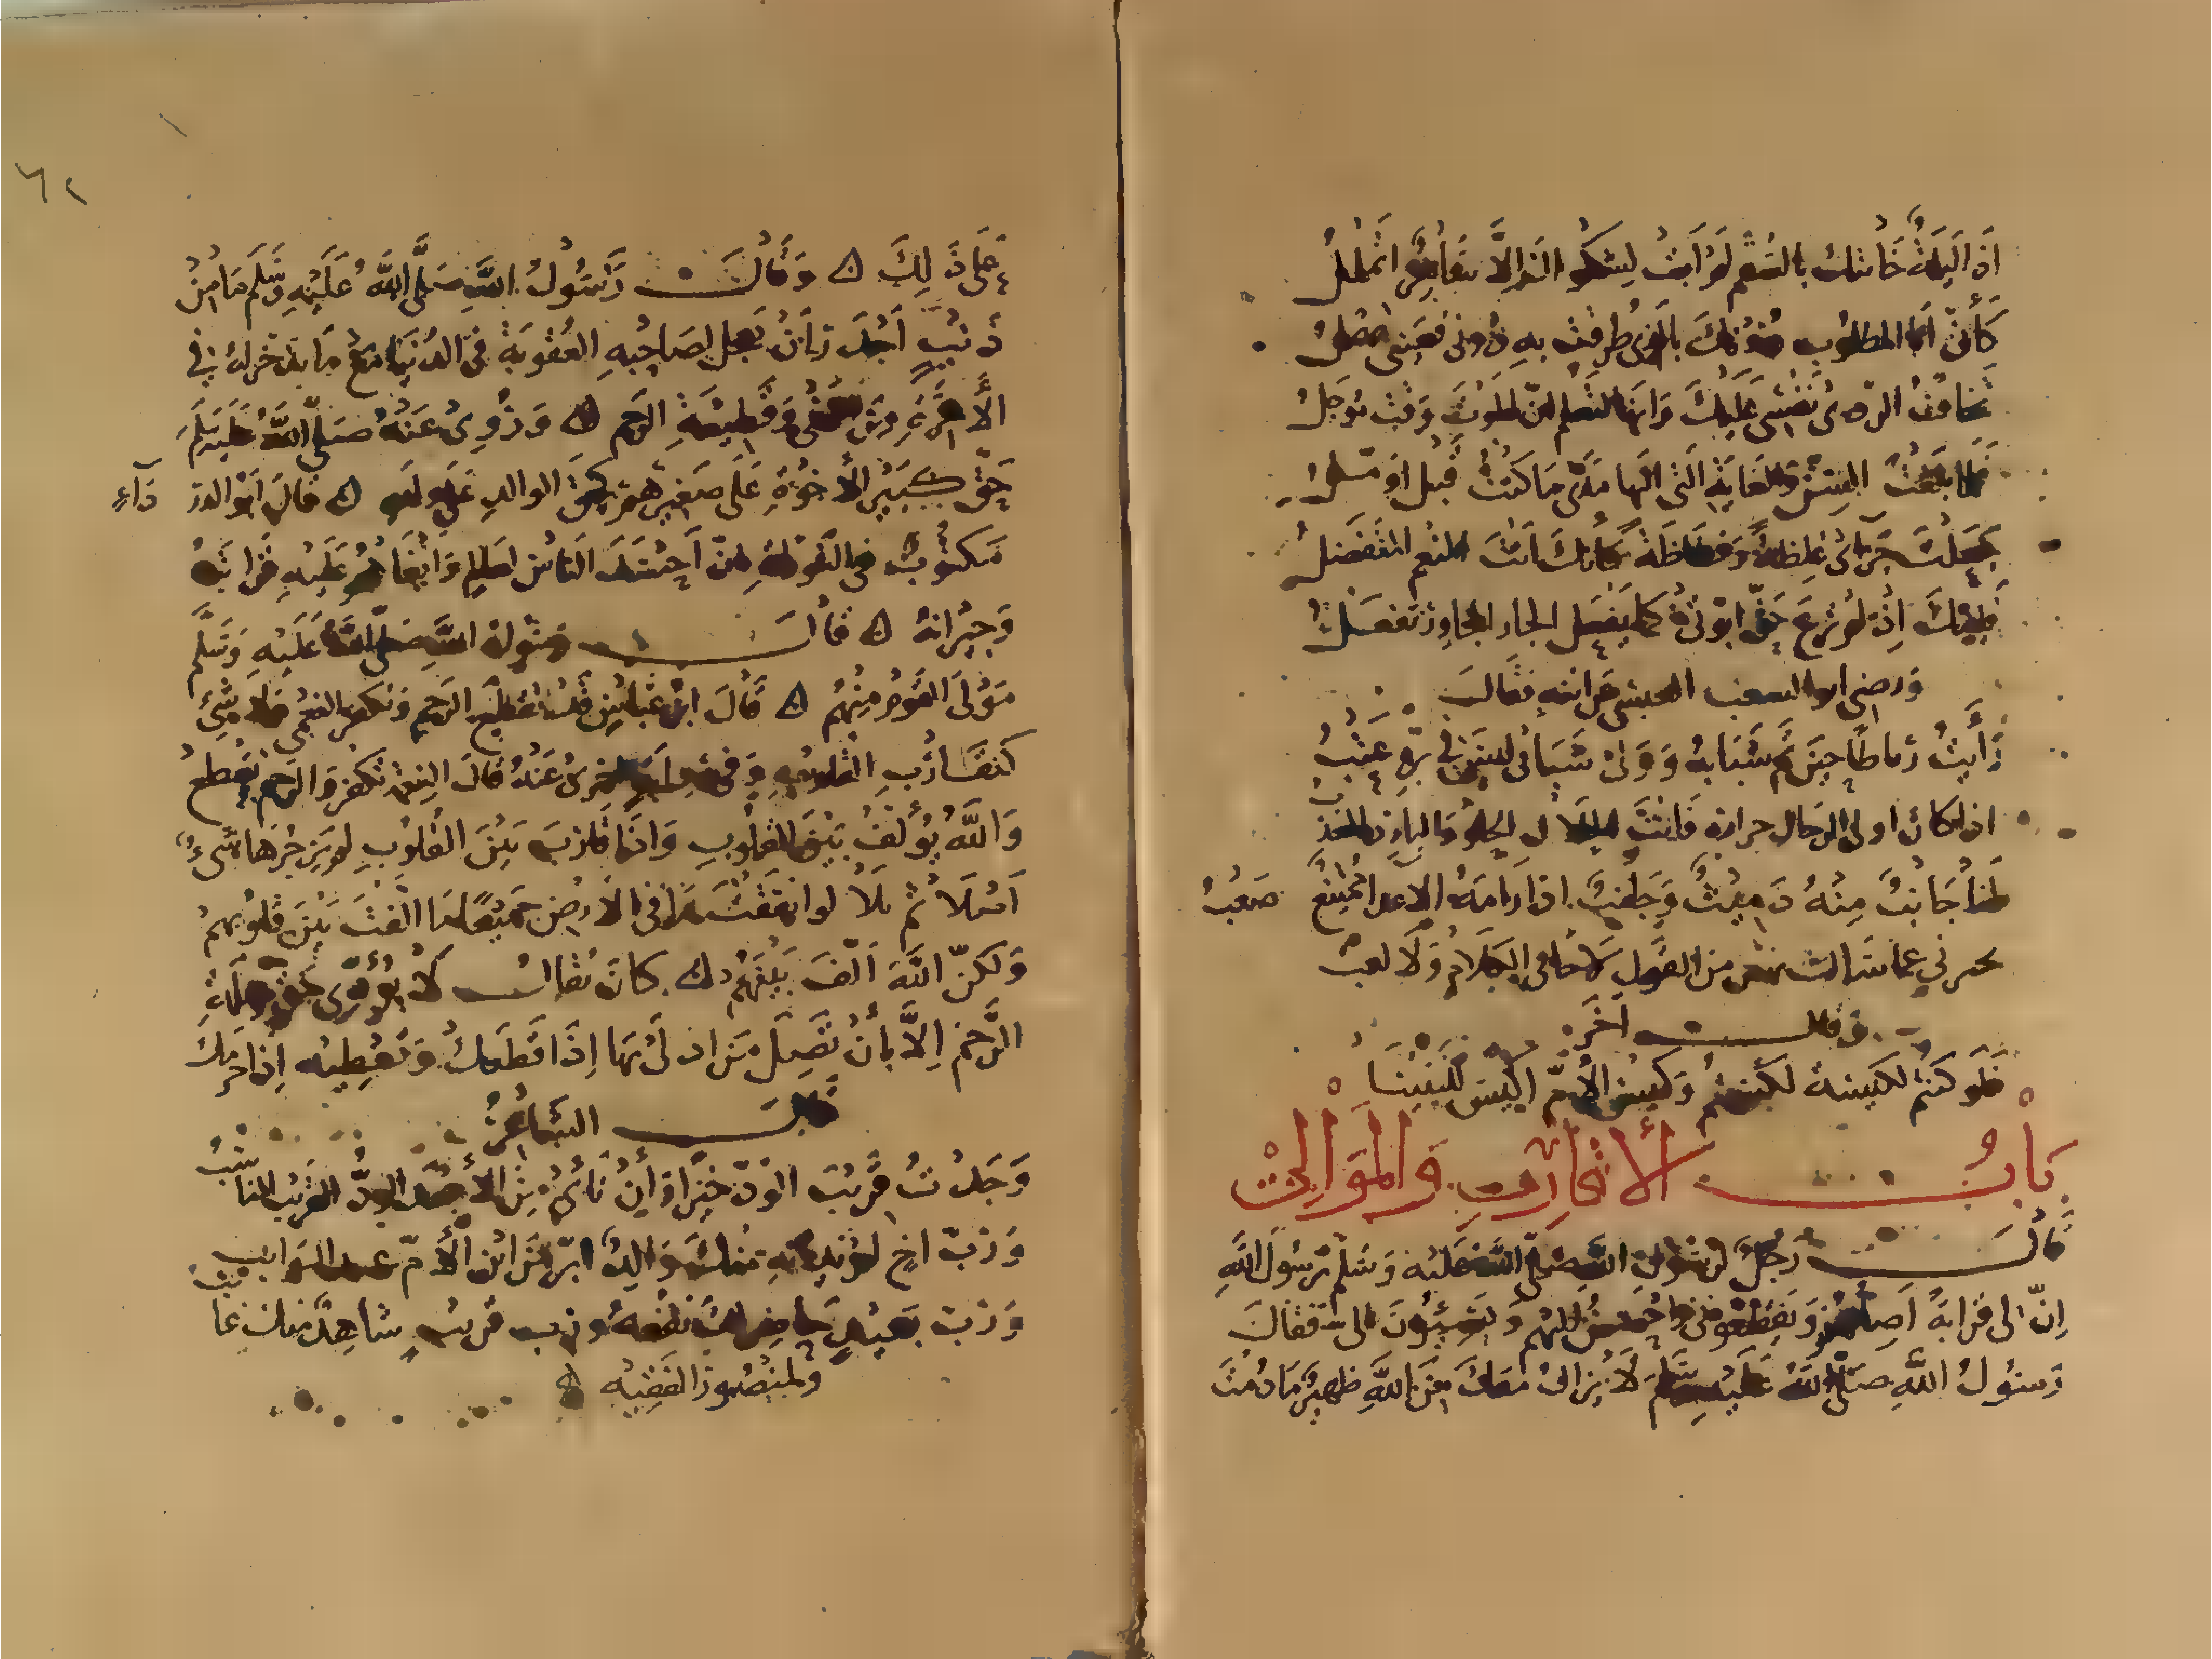 اذا ليلة نابتك بالسقم لم ابت لشكواك الا ساهرا اتململ
كأنى انا المطلوب دونك بالذى طرقت به دونى فعينى تهمل
تخاف الردى نفسى عليك وانها لتعلم ان الموت وقت مؤجل
فلما بلغت السن والغاية التى اليها مدى ما كنت قبل اؤمل
جعلت جزائى غلظة وفظاظة كأنك انت المنعم المتفضل
فليتك اذ لم ترع حق ابوتى كما يفعل الجار المجاور تفعل
ورضى ابو الشغب العبسى عن ابنه فقال
رأيت رباطا حين تم شبابه وولى شبابى ليس فى بره عتب
اذا كان اولاد الرجال حزازة فانت الحلال الحلو والبارد العذب
لنا جانب منه دميث وجانب اذا رامه الاعداء ممتنع صعب
يخبرنى عما سألت بهين من القول لا جافى الكلام ولا لغب
وقال آخر
فلو كنتم لكيسة لكاست وكيس الأم اكيس للبنينا
باب الأقارب والموالى
قال رجل لرسول الله صلى الله عليه وسلم يرسول الله
ان لى قرابة اصلهم ويقطعونى واحسن اليهم ويسيئون الى فقال
رسول الله صلى الله عليه وسلم لا يزال معك من الله ظهير ما دمت
على ذلك ه وقال رسول الله صلى الله عليه وسلم ما من
ذنب اجدر بأن يعجل لصاحبه العقوبة فى الدنيا مع ما يدخر له فى
الأخرة من بغى وقطيعة الرحم ه وروى عنه صلى الله عليه وسلم
حق كبير الأخوة على صغيرهم كحق الوالد على ولده ه قال ابو الدرداء
مكتوب فى التورية ان احسد الناس لعالم وابغاهم عليه قرابته
وجيرانه ه قال رسول الله صلى الله عليه وسلم
مولى القوم منهم ه قال ابن عباس قد تقطع الرحم وتكفر النعمى فلا شىء
كتقارب القلوب وفى رواية اخرى عنه قال النعمة تكفر والرحم تقطع
والله يؤلف بين القلوب واذا قارب بين القلوب لم يزحزحها شىء
ابدا ثم تلا لو انفقت ما فى الارض جميعا ما الفت بين قلوبهم
ولكن الله الف بينهم ه كان يقال لا يؤدى حق صلة
الرحم الا بأن تصل من ادلى بها اذا قطعك وتعطيه اذا حرمك
قال الشاعر
وجدت قريب الود خيرا وان نأى من الأبعد الود القريب المناسب
ورب اخ لم يدنه منك والد ابر من ابن الأم عند النوائب
ورب بعيد حاضر لك نفعه ورب قريب شاهد منك غائب
ولمنصور الفقيه ه